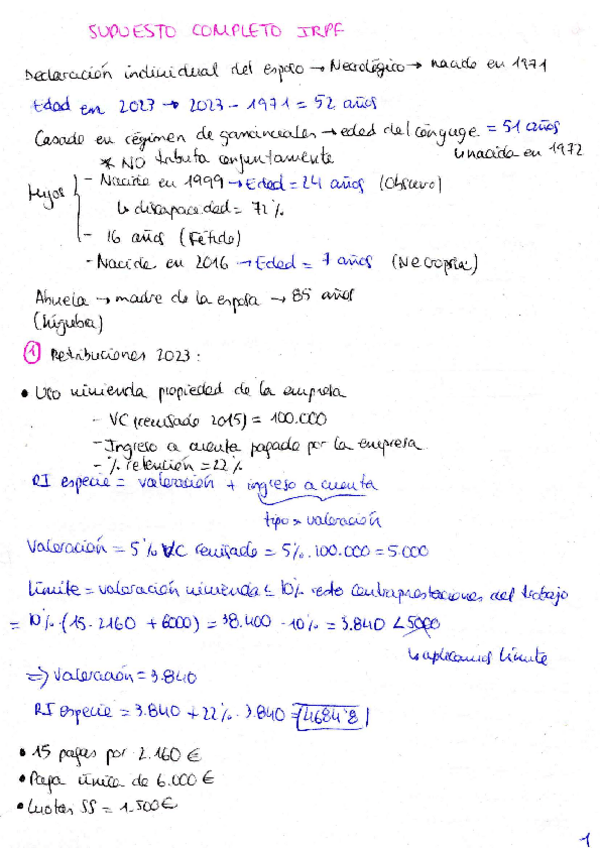 SUPUESTO COMPLETO IRPF
Declaración individual del esposo → Necrológico → nacido en 1971
Edad en 2023 → 2023 - 1971 = 52 años
Casado en régimen de gananciales → edad del cónyuge = 51 años
* NO tributa conjuntamente
↳ nacida en 1972
Hijos
- Nacido en 1999 → Edad = 24 años (Obscuro)
↳ discapacidad = 72%
- 16 años (Fétido)
- Nacida en 2016 → Edad = 7 años (Necropsia)
Abuela → madre de la esposa → 85 años
(Lúgubra)
① Retribuciones 2023:
• Uso vivienda propiedad de la empresa
- VC (revisado 2015) = 100.000
- Ingreso a cuenta pagado por la empresa
- % retención = 22%
RI especie = valoración + ingreso a cuenta
tipo × valoración
Valoración = 5% VC revisado = 5% · 100.000 = 5.000
Límite = valoración vivienda ≤ 10% resto contraprestaciones del trabajo
= 10% · (15 · 2160 + 6000) = 38.400 · 10% = 3.840 < 5000
↳ aplicamos límite
⇒ Valoración = 3.840
RI especie = 3.840 + 22% · 3.840 = 4684'8
• 15 pagas por 2.160 €
• Paga única de 6.000 €
• Cuotas SS = 1.500 €
1